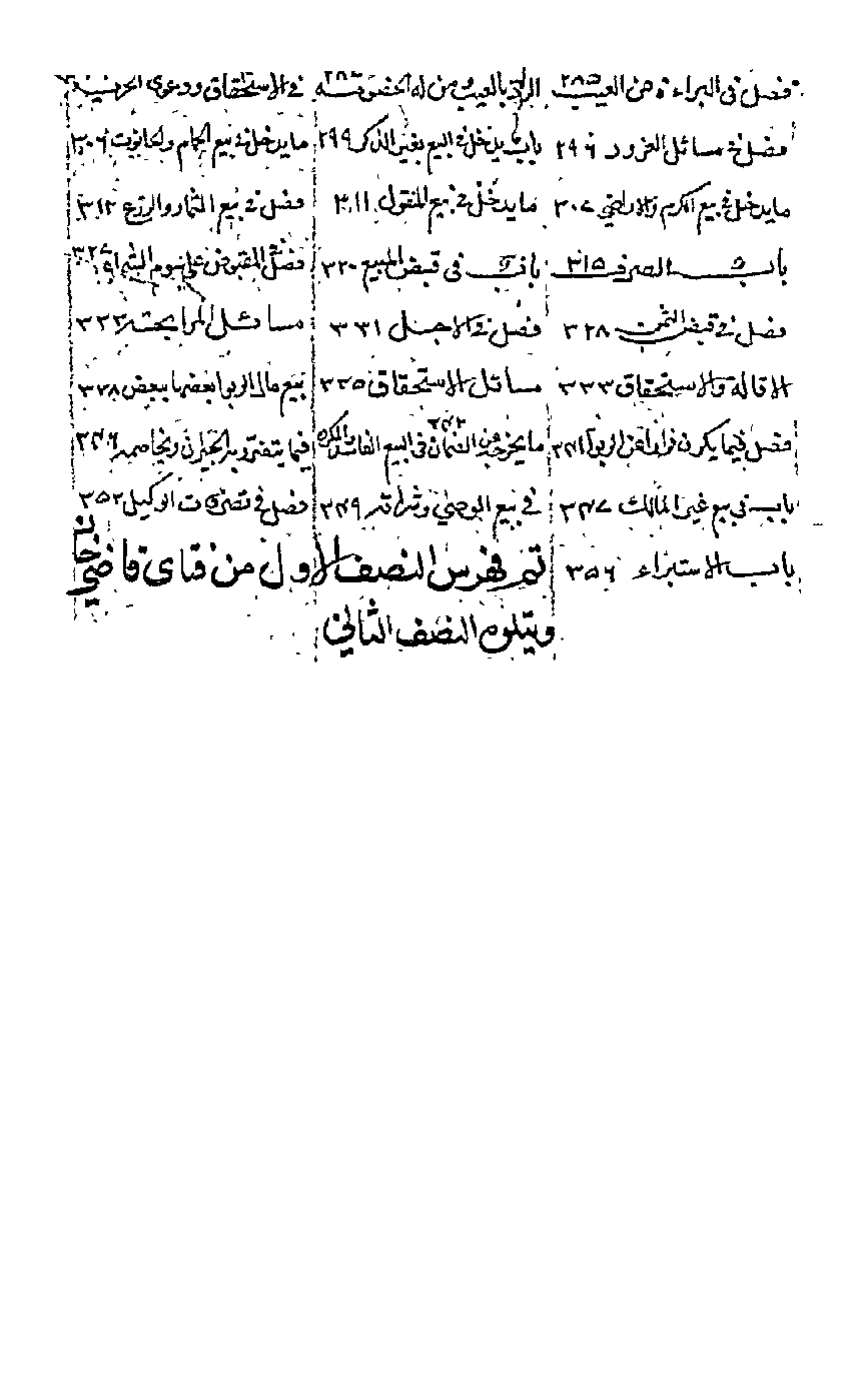 فصل فى البراءة من العيب ٢٨٥ الرد بالعيب ومن له الخصومة فى الاستحقاق ودعوى الحرية
فصل فى مسائل الغرور ٢٩٦ باب يدخل فى البيع بغير الذكر ٢٩٩ ما يدخل فى بيع الحمام والحانوت ٣٠٦
ما يدخل فى بيع الكرم والاراضى ٣٠٧ ما يدخل فى بيع المنقول ٣١١ فصل فى بيع الثمار والزرع ٣١٢
باب فى الصرف ٣١٥ باب فى قبض المبيع ٣٢٠ فصل المقبوض على سوم الشراء ٣٢٧
فصل فى قبض الثمن ٣٢٨ فصل فى الاجل ٣٣١ مسائل المرابحة ٣٣٣
الاقالة والاستحقاق ٣٣٣ مسائل الاستحقاق ٣٣٥ بيع مال الربوا بعضها ببعض ٣٣٨
فصل فيما يكون فرارا عن الربوا ٣٤١ ما يخرجه من الضمان فى البيع الفاسد والمكروه ٣٤٢ فيما يتضرر به الجيران ويخاصم ٣٤٦
باب فى بيع غير المالك ٣٤٧ فى بيع الوصى وشرائه ٣٤٩ فصل فى تصرفات الوكيل ٣٥٢
باب الاستبراء ٣٥٦ تم فهرس النصف الاول من فتاوى قاضى خان
ويتلوه النصف الثانى